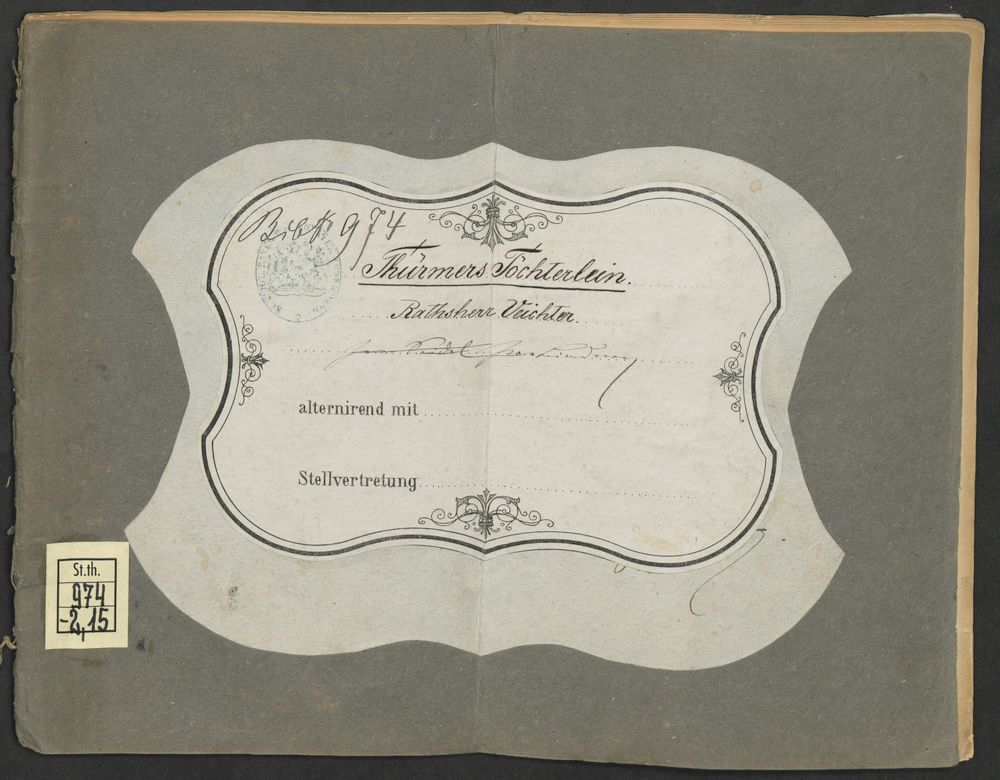 Bibl. 974
Thürmers Töchterlein.
Rathsherr Veichter.
alternirend mit
Stellvertretung
St.th.
974
-2,15